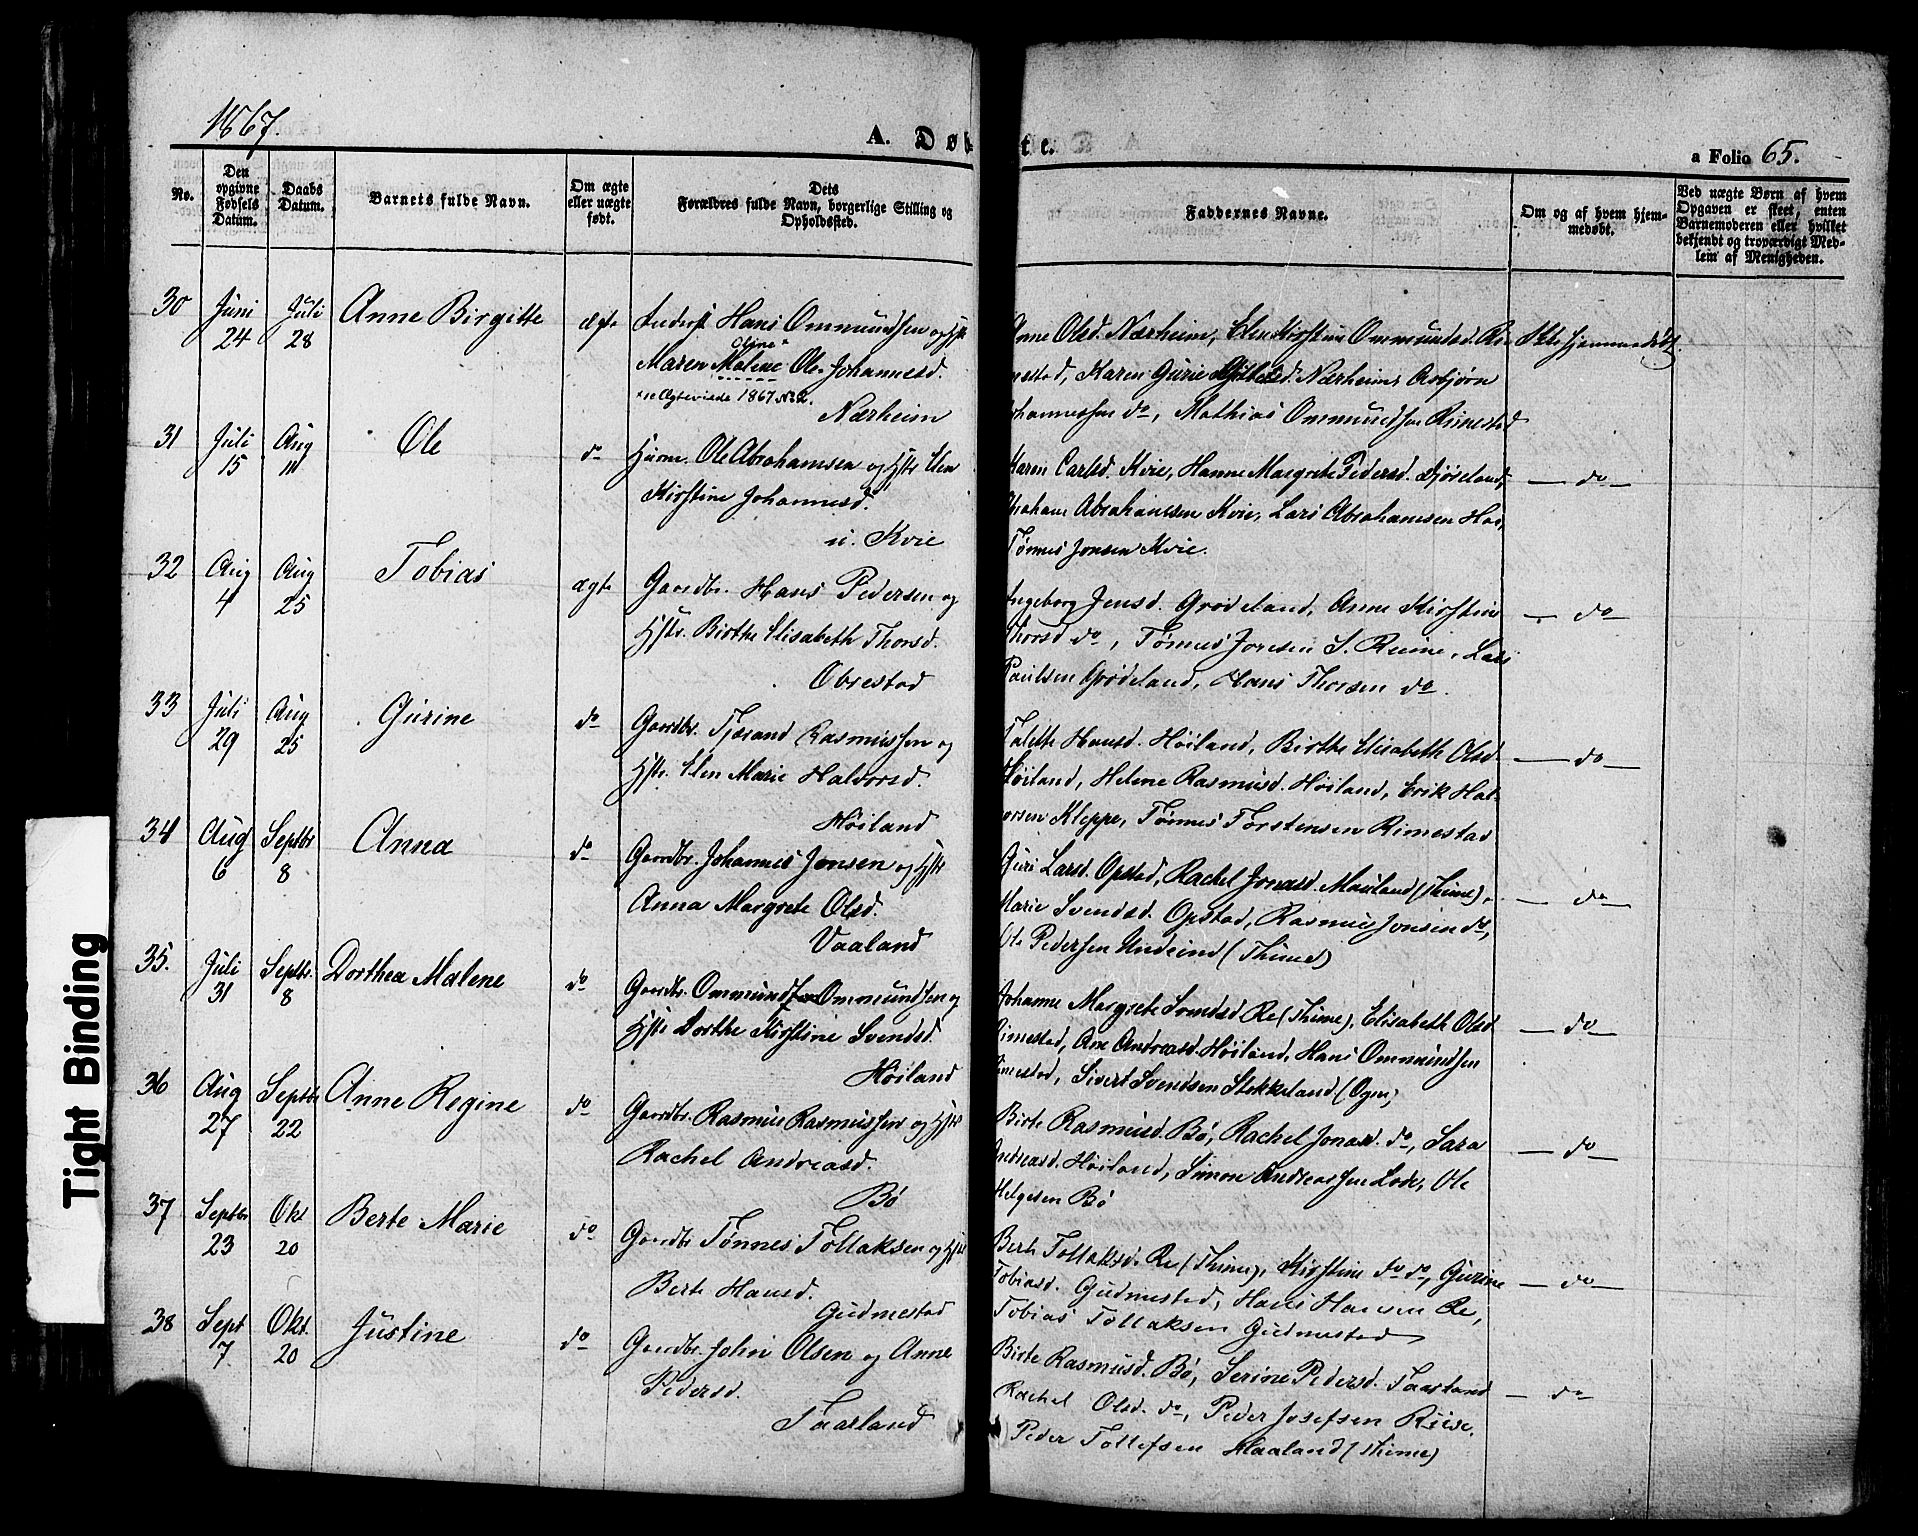 1867.
A. Døb
te.
a Folio 65.
No.
Den opgivne Fødsels Datum.
Daabs Datum.
Barnets fulde Navn.
Om ægte eller uægte født.
Dets Forældres fulde Navn, borgerlige Stilling og Opholdssted.
Faddernes Navne.
Om og af hvem hjem-
medøbt.
Ved uægte Børn af hvem
Opgaven er skeet, enten
Barnemoderen eller hvilket
bekjendt og troværdigt Med-
lem af Menigheden.
30 Juni 24 Juli 28 Anne Birgitte ægte Inderst Hans Ommundsen og Hstr
Oline
Maren Malene Ole Johannesd.
Ægteviede 1867 No 2.
Nærheim
Anne Olsd. Nærheim, Elen Kirstine Ommundsd. Ri-
mestad, Karen Gurie Nærheim, Asbjørn
Johannessen do, Mathias Ommundsen Rimestad
Ikke hjemmedøbt.
31 Juli 15 Aug 11 Ole do Huusm. Ole Abrahamsen og Hstr Elen
Kirstine Johannesd.
u. Kvie
Karen Carlsd. Kvie, Hanne Margrete Pedersd.
Abraham Abrahamsen Kvie, Lars Abrahamsen
Tønnes Jonsen Kvie.
do
32 Aug 4 Aug 25 Tobias ægte Gaardbr. Hans Pedersen og
Hstr. Birthe Elisabeth Thorsd.
Obrestad
Ingeborg Jensd. Grødeland, Anne Kirstine
Thorsd do, Tønnes S. Reime, Lars
Paulsen Grødeland, Hans Thorsen do.
do
33 Juli 29 Aug 25 Gurine do Gaardbr. Tjerand Rasmussen og
Hstr. Elen Marie Halvorsd.
Høiland
Talette Hansd. Høiland, Birthe Elisabeth Olsd.
Høiland, Helene Rasmusd. Høiland, Erik Hal-
vorsen Kleppe, Tønnes Torstensen Rimestad
do
34 Aug 6 Septbr 8 Anna do Gaardbr. Johannes Jonsen og Hstr
Anna Margrete Olsd.
Vaaland
Guri Larsd. Opstad, Rachel Jonasd. Mauland (Thime),
Marie Svendsd. Opstad, Rasmus Jonsen do,
Ole Pedersen Undeim (Thime)
do
35. Juli 31 Septbr. 8 Dorthea Malene do Gaardbr. Ommund Ommundsen og
Hstr Dorthe Kirstine Svendsd.
Høiland
Johanne Margrete Svendsd Re (Thime), Elisabeth Olsd
Rimestad, Ane Andreasd. Høiland, Hans Ommundsen
Rimestad, Sivert Svendsen Stokkeland (Ogne)
do
36 Aug 27 Septbr 22 Anne Regine do Gaardbr. Rasmus Rasmussen og Hstr
Rachel Andreasd.
Bø
Birte Rasmusd. Bø, Rachel Jonasd. do, Sara
Andreasd. Høiland, Simon Andreassen Lode, Ole
Helgesen Bø
do
37 Septbr 23 Okt 20 Berte Marie do Gaardbr Tønnes Tollaksen og Hstr
Berte Hansd.
Gudmestad
Berte Tollaksd. Re (Thime), Kirstine do do, Gurine
Tobiasd. Gudmestad, Hans Hansen Re,
Tobias Tollaksen Gudmestad
do
38 Sept 7 Okt. 20 Justine do Gaardbr. John Olsen og Anne
Pedersd.
Taarland
Birte Rasmusd. Bø, Serine Pedersd. Taarland
Rachel Olsd. do, Peder Josefsen Riise,
Peder Tollefsen Haaland (Thime)
do
Tight Binding